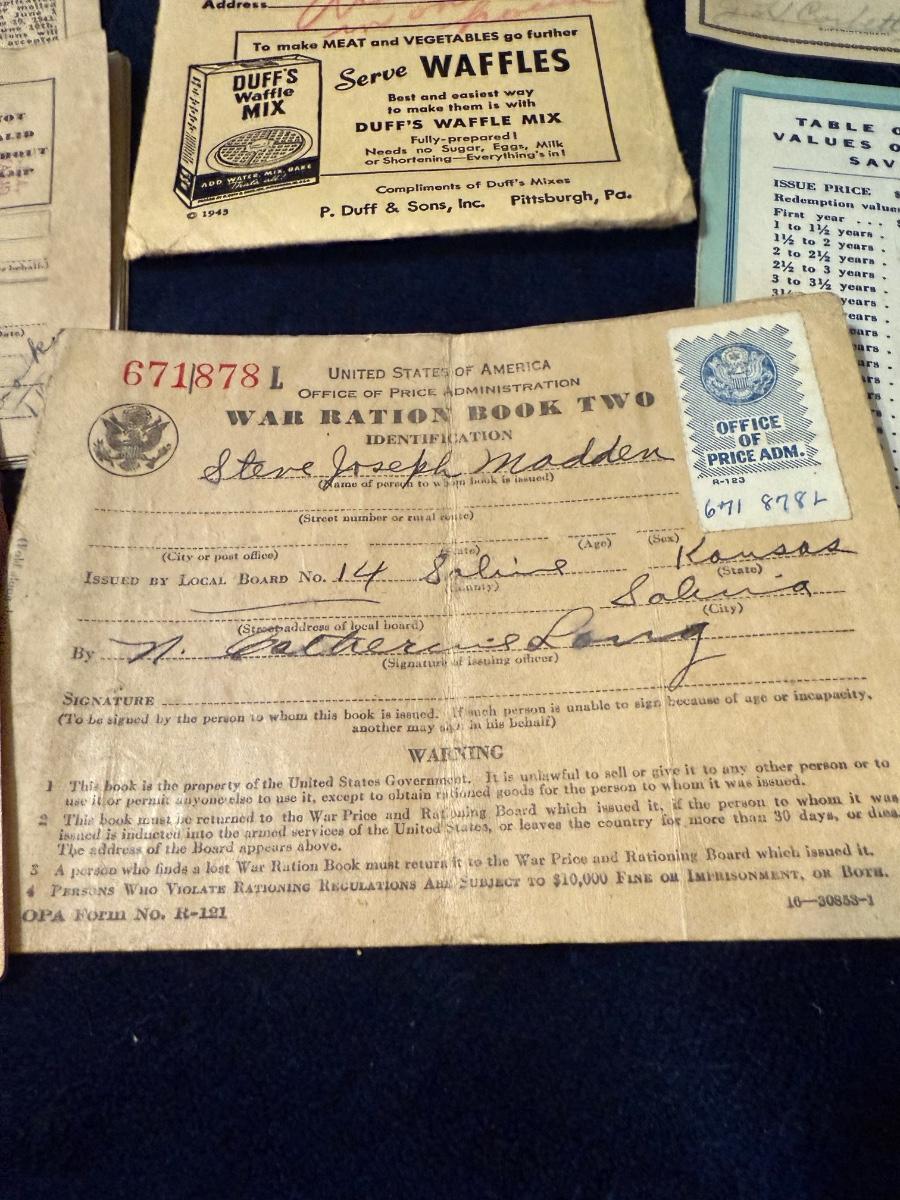 Address
To make MEAT and VEGETABLES go further
Serve WAFFLES
Best and easiest way
to make them is with
DUFF'S WAFFLE MIX
Fully-prepared!
Needs no Sugar, Eggs, Milk
or Shortening—Everything's in!
DUFF'S
Waffle
MIX
ADD WATER, MIX, BAKE
That's all!
© 1943
Compliments of Duff's Mixes
P. Duff & Sons, Inc. Pittsburgh, Pa.
TABLE
VALUES
SAV
ISSUE PRICE
Redemption values
First year
1 to 1½ years
1½ to 2 years
2 to 2½ years
2½ to 3 years
3 to 3½ years
years
years
years
671878 L
UNITED STATES OF AMERICA
OFFICE OF PRICE ADMINISTRATION
WAR RATION BOOK TWO
IDENTIFICATION
Steve Joseph Madden
(Name of person to whom book is issued)
(Street number or rural route)
(City or post office) (State) (Age) (Sex)
ISSUED BY LOCAL BOARD No. 14 Saline Kansas
(County) (State)
Salina
(Street address of local board) (City)
By N. Catherine Long
(Signature of issuing officer)
SIGNATURE
(To be signed by the person to whom this book is issued. If such person is unable to sign because of age or incapacity,
another may sign in his behalf)
WARNING
1 This book is the property of the United States Government. It is unlawful to sell or give it to any other person or to
use it or permit anyone else to use it, except to obtain rationed goods for the person to whom it was issued.
2 This book must be returned to the War Price and Rationing Board which issued it, if the person to whom it was
issued is inducted into the armed services of the United States, or leaves the country for more than 30 days, or dies.
The address of the Board appears above.
3 A person who finds a lost War Ration Book must return it to the War Price and Rationing Board which issued it.
4 PERSONS WHO VIOLATE RATIONING REGULATIONS ARE SUBJECT TO $10,000 FINE OR IMPRISONMENT, OR BOTH.
OPA Form No. R-121
16—30853-1
OFFICE
OF
PRICE ADM.
R-123
671 878 L